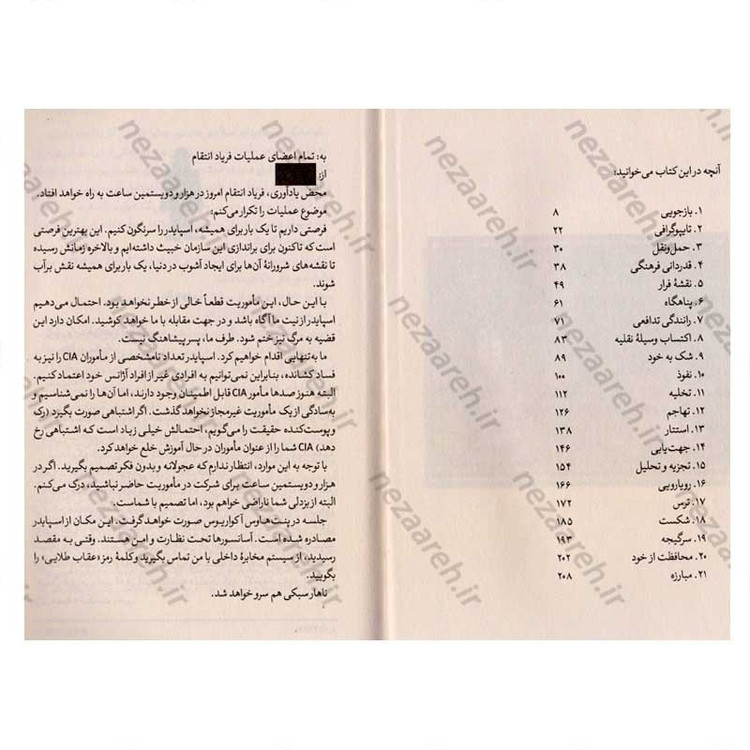 آنچه در این کتاب می‌خوانید:
۱. بازجویی ۸
۲. تایپوگرافی ۲۲
۳. حمل‌ونقل ۳۰
۴. قدردانی فرهنگی ۳۸
۵. نقشهٔ فرار ۴۹
۶. پناهگاه ۶۱
۷. رانندگی تدافعی ۷۱
۸. اکتساب وسیلهٔ نقلیه ۸۳
۹. شک به خود ۸۹
۱۰. نفوذ ۱۰۰
۱۱. تخلیه ۱۱۲
۱۲. تهاجم ۱۲۶
۱۳. استتار ۱۳۸
۱۴. جهت‌یابی ۱۴۶
۱۵. تجزیه و تحلیل ۱۵۴
۱۶. رویارویی ۱۶۶
۱۷. ترس ۱۷۲
۱۸. شکست ۱۸۵
۱۹. سرگیجه ۱۹۳
۲۰. محافظت از خود ۲۰۲
۲۱. مبارزه ۲۰۸
به: تمام اعضای عملیات فریاد انتقام
از:
محض یادآوری، فریاد انتقام امروز در هزار و دویستمین ساعت به راه خواهد افتاد.
موضوع عملیات را تکرار می‌کنم:
فرصتی داریم تا یک بار برای همیشه، اسپایدر را سرنگون کنیم. این بهترین فرصتی
است که تاکنون برای براندازی این سازمان خبیث داشته‌ایم و بالاخره زمانش رسیده
تا نقشه‌های شرورانهٔ آن‌ها برای ایجاد آشوب در دنیا، یک بار برای همیشه نقش بر آب
شوند.
با این حال، این مأموریت قطعاً خالی از خطر نخواهد بود. احتمال می‌دهیم
اسپایدر از نیت ما آگاه باشد و در جهت مقابله با ما خواهد کوشید. امکان دارد این
قضیه به مرگ نیز ختم شود. طرف ما، سرپیشاهنگ نیست.
ما به‌تنهایی اقدام خواهیم کرد. اسپایدر تعداد نامشخصی از مأموران CIA را نیز به
فساد کشانده، بنابراین نمی‌توانیم به افرادی غیر از افراد آژانس خود اعتماد کنیم.
البته هنوز صدها مأمور CIA قابل اطمینان وجود دارند، اما آن‌ها را نمی‌شناسیم و
به‌سادگی از یک مأموریت غیرمجاز نخواهد گذشت. اگر اشتباهی صورت بگیرد (رک
و پوست‌کنده حقیقت را می‌گویم، احتمالش خیلی زیاد است که اشتباهی رخ
دهد) CIA شما را از عنوان مأموران در حال آموزش خلع خواهد کرد.
با توجه به این موارد، انتظار ندارم که عجولانه و بدون فکر تصمیم بگیرید. اگر در
هزار و دویستمین ساعت برای شرکت در مأموریت حاضر نباشید، درک می‌کنم.
البته از بزدلی شما ناراضی خواهم بود، اما تصمیم با شماست.
جلسه در پنت‌هاوس آکواریوس صورت خواهد گرفت. این مکان از اسپایدر
مصادره شده است. آسانسورها تحت نظارت و امن هستند. وقتی به مقصد
رسیدید، از سیستم مخابرهٔ داخلی با من تماس بگیرید و کلمهٔ رمز «عقاب طلایی» را
بگویید.
ناهار سبکی هم سرو خواهد شد.
nezaareh.ir
nezaareh.ir
nezaareh.ir
nezaareh.ir
nezaareh.ir
nezaareh.ir
nezaareh.ir
nezaareh.ir